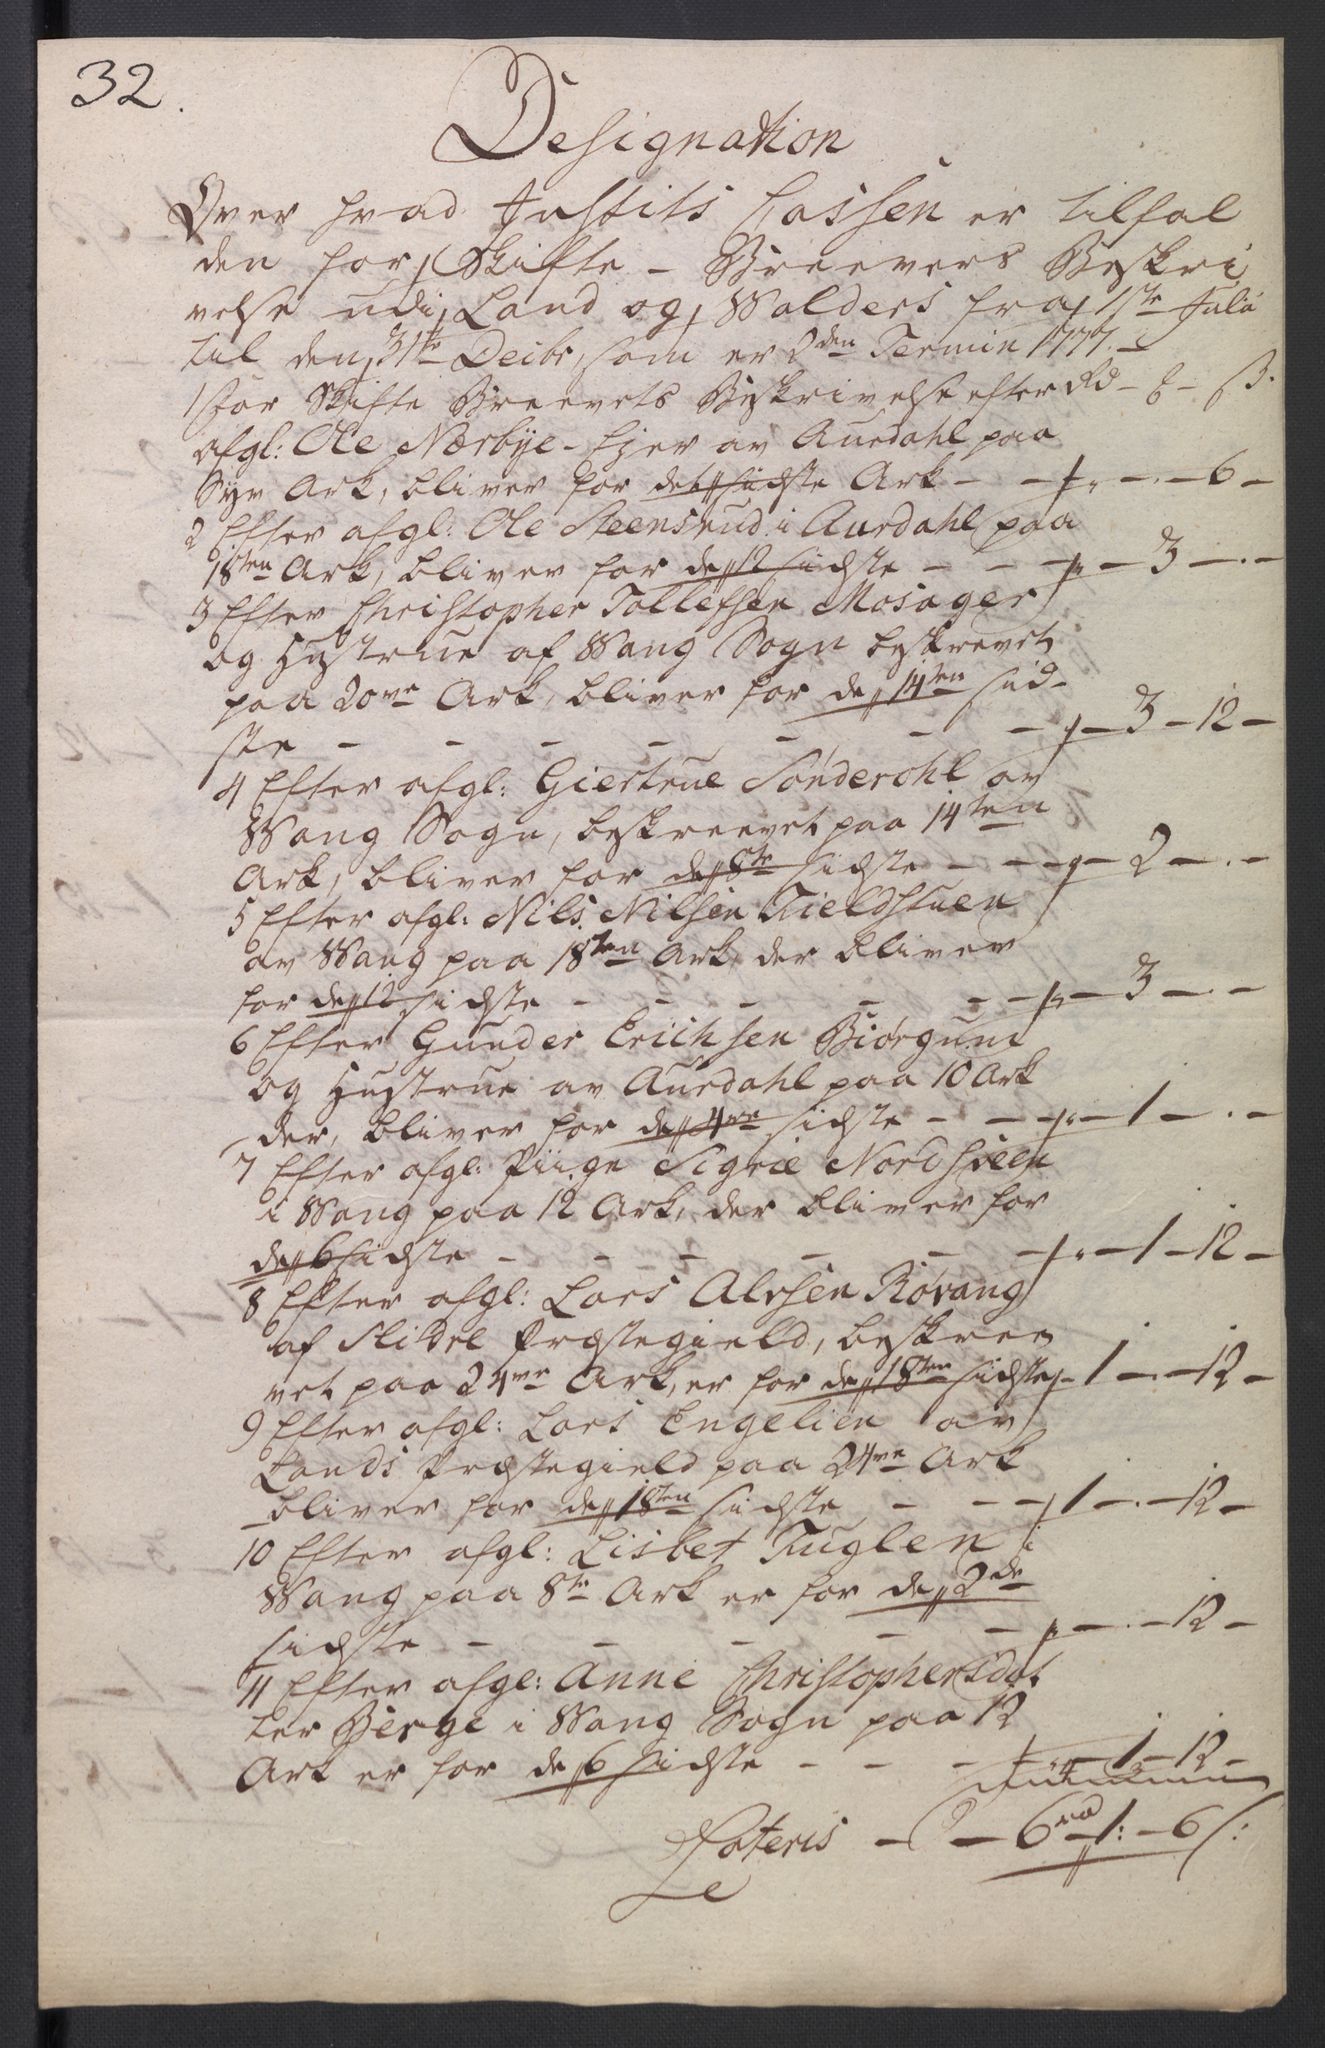 32.
Designation
Over hvad Justits Cassen er tilfal
den for Skifte - Breevers Beskri
velse udi Land og Walders fra 1ste Julii
til den 31te Decbr, som er 2den Termin 1777.
1 For Skifte Breevets Beskrivelse efter Rd - ß.
afgl: Ole Nærbye-Ejer av Aurdahl paa
Syv Ark, bliver for det sidste Ark - - - 6 -
2 Efter afgl: Ole Steensrud i Aurdahl paa
18ten Ark, bliver for de 12 sidste - - - 3 - . -
3 Efter Christopher Tollefsen Mosager
og Hustrue af Wang Sogn beskrevet
paa 20ve Ark, bliver for de 14ten sid-
ste - - - - - - - 3 - 12 -
4 Efter afgl: Giertrue Sønderohl av
Wang Sogn, beskreevet paa 14ten
Ark, bliver for de 8te sidste - - - 2 - . -
5 Efter afgl: Nils Nilsen Fieldstuen
av Wang paa 18ten Ark, der bliver
for de 12 sidste - - - - - - 3 - . -
6 Efter Gunder Erichsen Biørgum
og Hustrue av Aurdahl paa 10 Ark
der, bliver for de 4re sidste - - - 1 - . -
7 Efter afgl: Piige Sigrie Nordsveen
i Wang paa 12 Ark, der bliver for
de 6 sidste - - - - - - - 1 - 12 -
8 Efter afgl: Lars Alvsen Røvang
af Slidre Præstegield, beskree
vet paa 24ve Ark, er for de 18ten sidste - 1 - . - 12 -
9 Efter afgl: Lars Engelien av
Lands Præstegield paa 24ve Ark
bliver for de 18ten sidste - - - 1 - . - 12 -
10 Efter afgl: Lisbet Fuglen i
Wang paa 8te Ark er for de 2de
sidste - - - - - - . - 12 -
11 Efter afgl: Anne Christophersdat
ter Berge i Wang Sogn paa 12
Ark er for de 6 sidste - - - - 1 - 12 -
Lateris - 6rd - 1: - 6 ß: